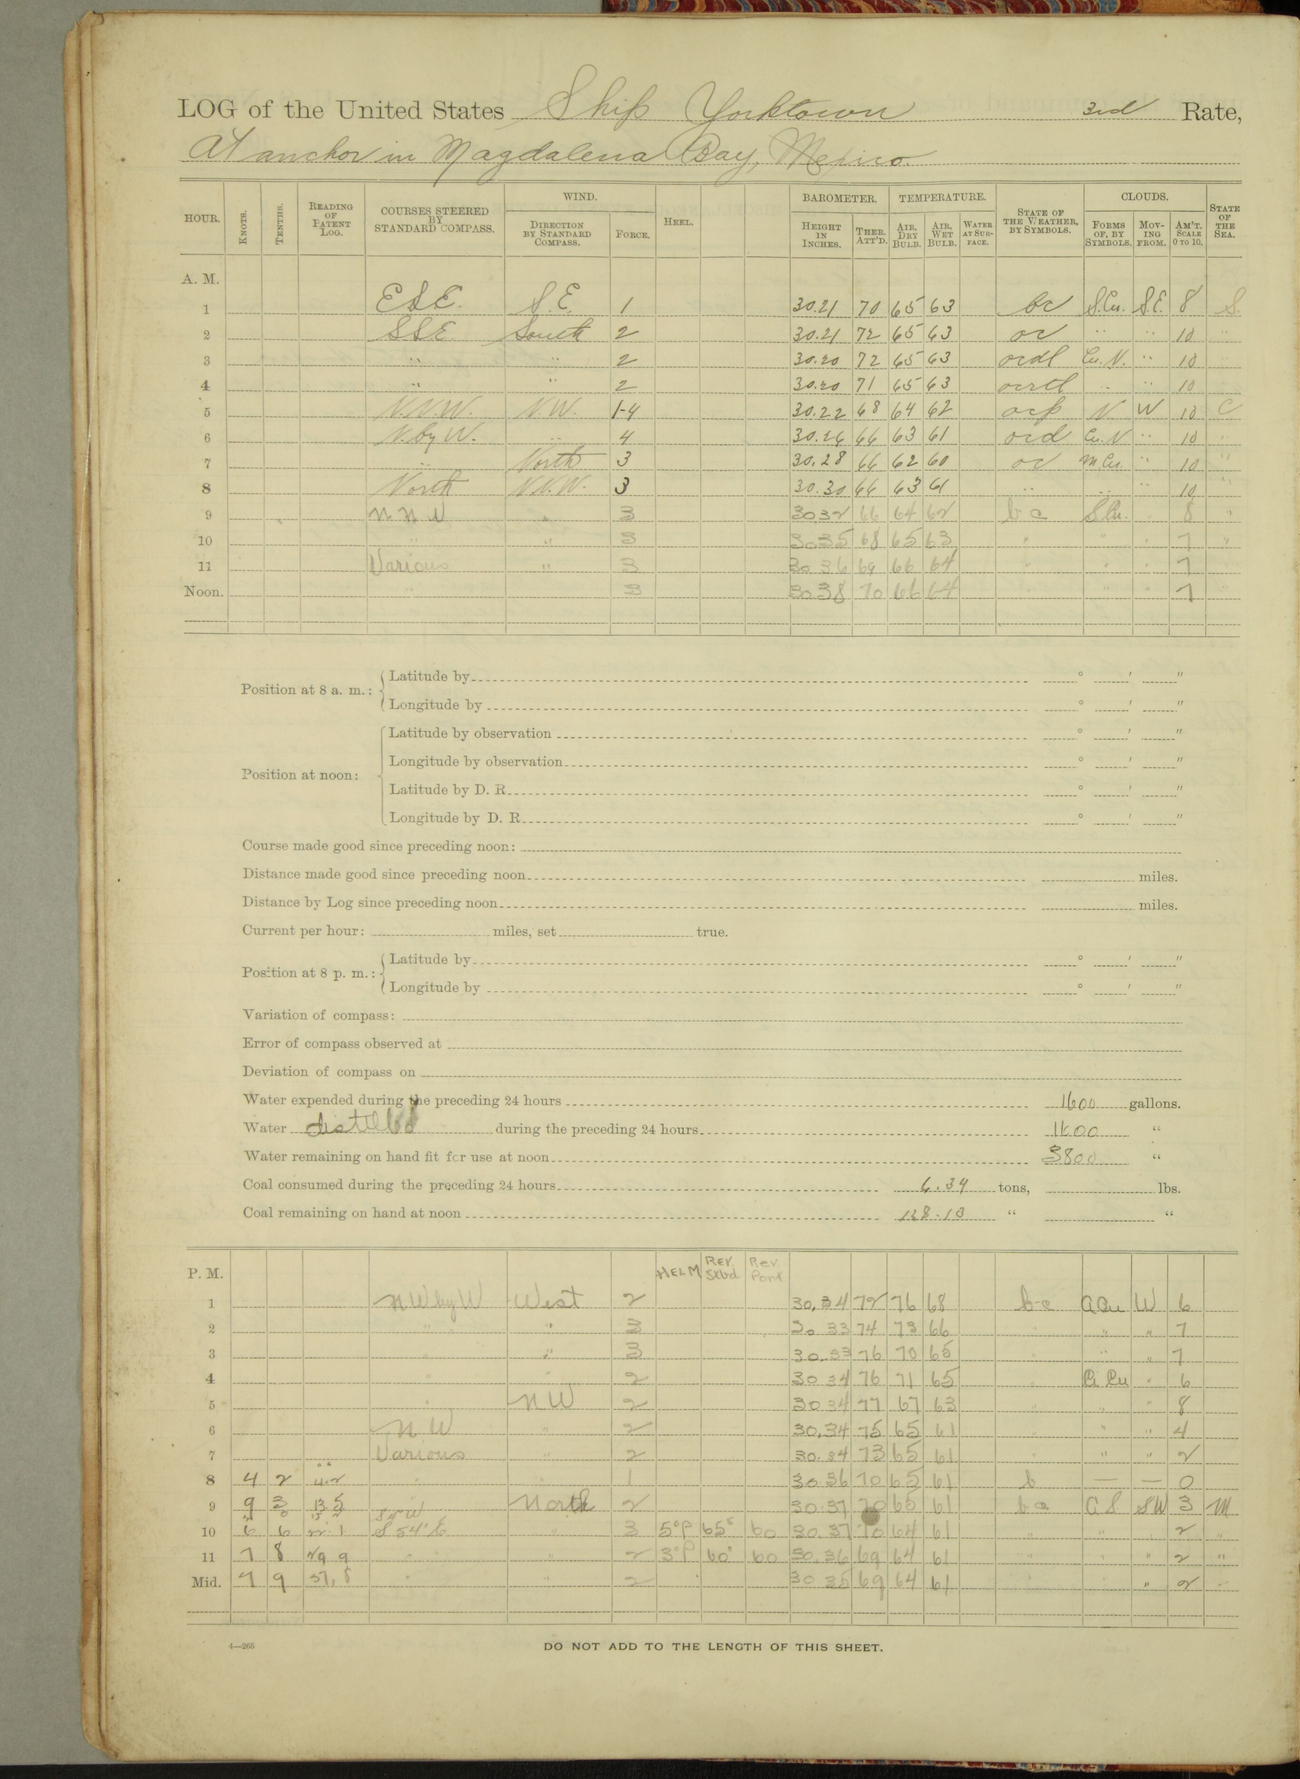 LOG of the United States Ship Yorktown 3rd Rate,
At anchor in Magdalena Bay, Mexico
HOUR. KNOTS. TENTHS. READING OF PATENT LOG. COURSES STEERED BY STANDARD COMPASS. WIND. DIRECTION BY STANDARD COMPASS. FORCE. HEEL. BAROMETER. HEIGHT IN INCHES. THER. ATT'D. TEMPERATURE. AIR, DRY BULB. AIR, WET BULB. WATER AT SURFACE. STATE OF THE WEATHER, BY SYMBOLS. CLOUDS. FORMS OF, BY SYMBOLS. MOVING FROM. AM'T. SCALE 0 TO 10. STATE OF THE SEA.
A. M.
1 ESE. S.E. 1 30.21 70 65 63 bc S.Cu. S.E. 8 S.
2 SSE South 2 30.21 72 65 63 oc " " 10
3 " " 2 30.20 72 65 63 ocdl Cu.N. " 10
4 " " 2 30.20 71 65 63 " " 10
5 N.N.W. N.W. 1-4 30.22 68 64 62 ocp N W 10 C
6 N. by W. " 4 30.26 66 63 61 ocd Cu.N " 10 "
7 " North 3 30.28 66 62 60 oc " 10 "
8 North N.N.W. 3 30.30 66 63 61 " " " 10 "
9 NNW " 3 30 32 66 64 62 bc S.Cu. " 8 "
10 " " 3 30 35 68 65 63 " " " 7 "
11 Various " 3 30 36 69 66 64 " " " 7
Noon. " 3 30 38 70 66 64 " " " 7
Position at 8 a. m.: Latitude by ° ′ ″
Longitude by ° ′ ″
Position at noon: Latitude by observation ° ′ ″
Longitude by observation ° ′ ″
Latitude by D. R. ° ′ ″
Longitude by D. R. ° ′ ″
Course made good since preceding noon:
Distance made good since preceding noon miles.
Distance by Log since preceding noon miles.
Current per hour: miles, set true.
Position at 8 p. m.: Latitude by ° ′ ″
Longitude by ° ′ ″
Variation of compass:
Error of compass observed at
Deviation of compass on
Water expended during the preceding 24 hours 1600 gallons.
Water distilled during the preceding 24 hours 1600 "
Water remaining on hand fit for use at noon 3800 "
Coal consumed during the preceding 24 hours 6.34 tons, lbs.
Coal remaining on hand at noon 128.13 " "
P. M. HELM Rev Stbd Rev Port
1 NW by W West 2 30.34 72 76 68 bc A Cu W 6
2 " " 3 30 33 74 73 66 " " " 7
3 " " 3 30.33 76 70 65 " " " 7
4 " " 2 30 34 76 71 65 " Ci Cu " 6
5 " NW 2 30 34 77 67 63 " " " 8
6 NW " 2 30.34 75 65 61 " " " 4
7 Various " 2 30.34 73 65 61 " " " 2
8 4 2 " " 1 30 36 70 65 61 b — — 0
9 9 3 13 5 North 2 30.37 70 65 61 bc SW 3 M
10 6 6 S 54° E " 3 5°P 65 60 30.37 70 64 61 " " " 2 "
11 7 8 29 9 " " 2 3°P 60 60 30.36 69 64 61 " " " 2 "
Mid. 7 9 37,8 " " 2 30 35 69 64 61 " 2 "
4—265
DO NOT ADD TO THE LENGTH OF THIS SHEET.